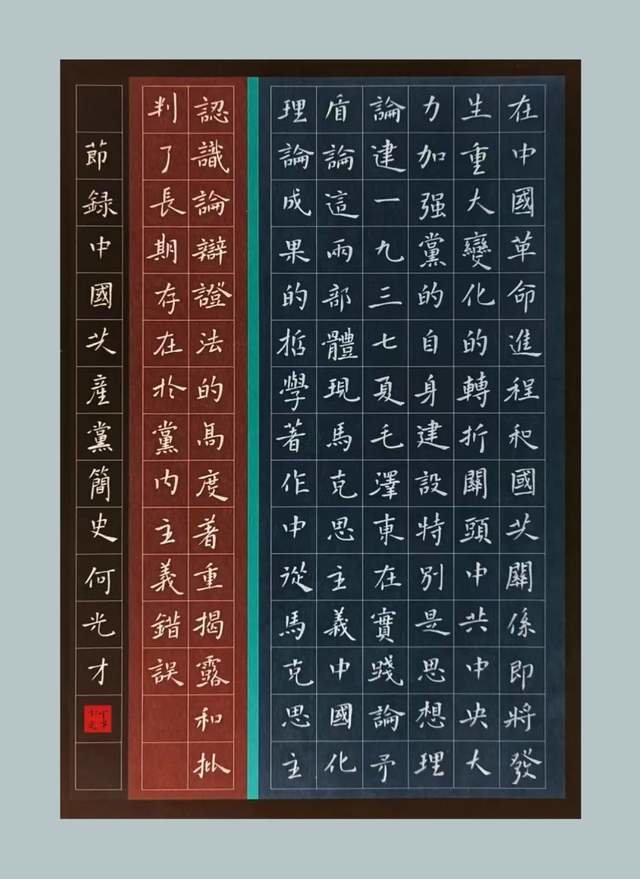 在中國革命進程和國共關係即將發
生重大變化的轉折關頭中共中央大
力加强黨的自身建設特別是思想理
論建一九三七夏毛澤東在實踐論矛
盾論這兩部體現馬克思主義中國化
理論成果的哲學著作中從馬克思主
認識論辯證法的高度著重揭露和批
判了長期存在於黨内主義錯誤
節録中國共産黨簡史何光才